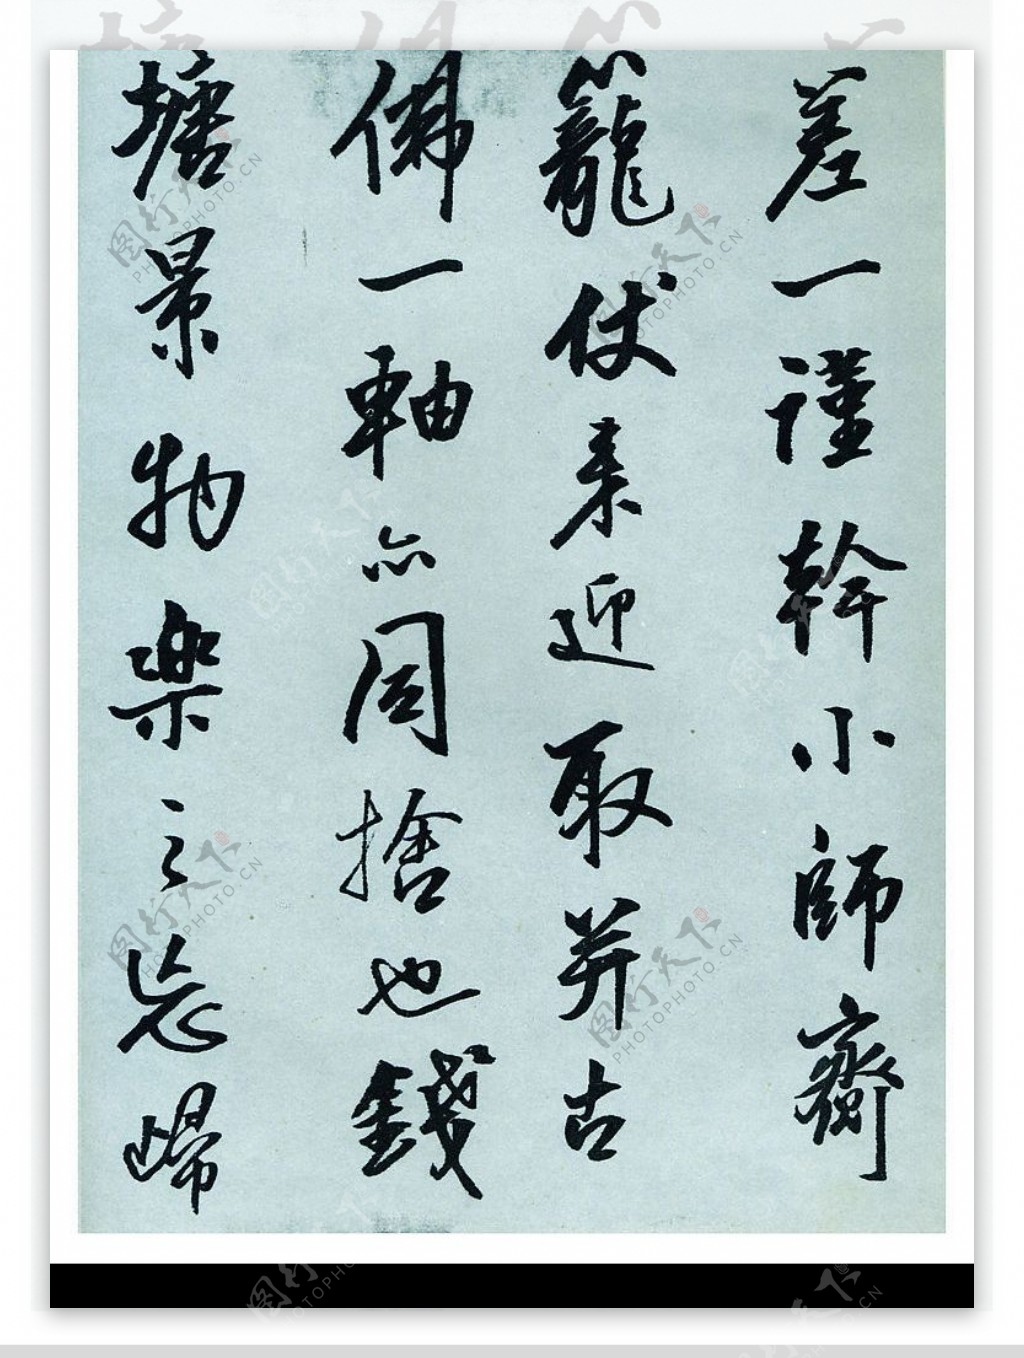 差一謹幹小師齋
籠仗来迎取并古
佛一軸亦同捨也錢
塘景物樂之忘歸